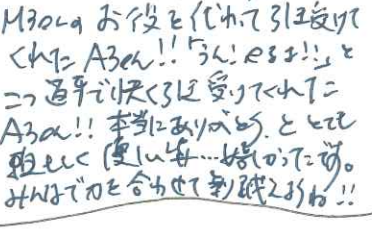 M3さんのお役を代わって引き受けて
くれたA3さん!!「うん!やるよ!!」と
二つ返事で快く引き受けてくれた
A3さん!!本当にありがとう。とても
頼もしく優しい…嬉しかったです。
みんなで力を合わせて乗り越えようね!!